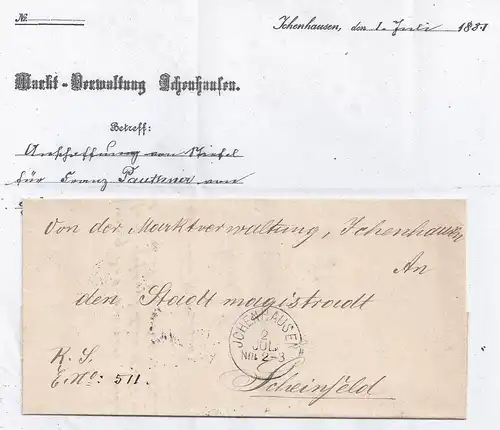 No.
Ichenhausen, den 1. Juli 1887
Markt-Verwaltung Ichenhausen.
Betreff:
Anschaffung von Stiefel
für Franz von
Von der Marktverwaltung, Ichenhausen
An
den Stadtmagistradt
JCHENHAUSEN
2
JUL.
Nm 2-3
K. S.
E. No: 511.
Scheinfeld